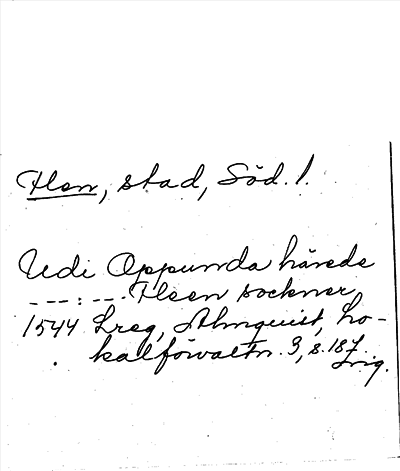 Flen, stad, Söd. l.
Udi Oppunda härede
---:--- Fleen sockner
1544 Lreg, Almquist, Lo-
kalförvaltn. 3, s. 187.
orig.